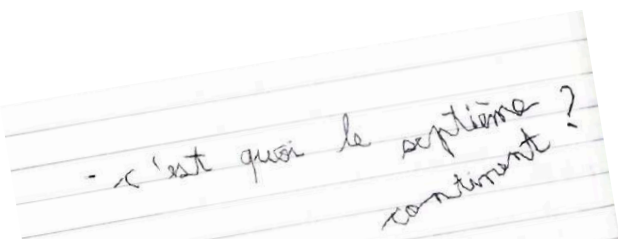 - c'est quoi le septième
continent ?